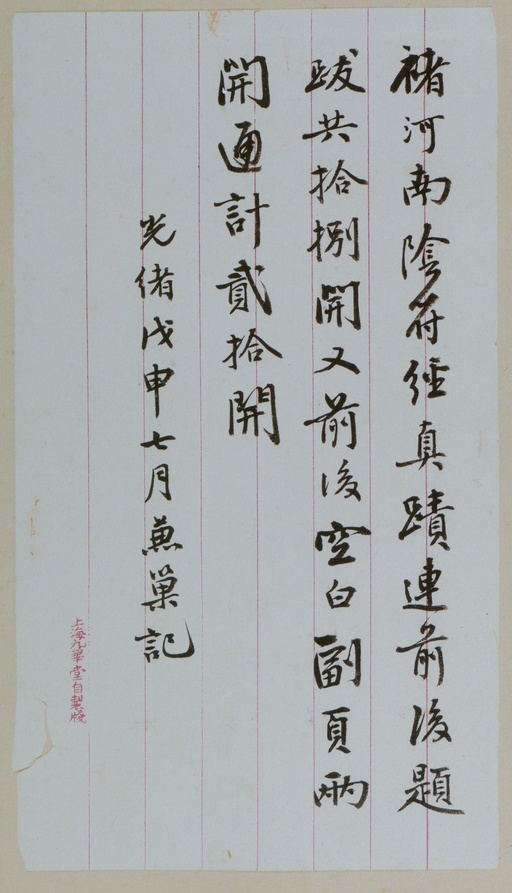 褚河南陰符經真蹟連前後題
跋共拾捌開又前後空白副頁兩
開通計貳拾開
光緒戊申七月蕉巢記
上海九華堂自製牋